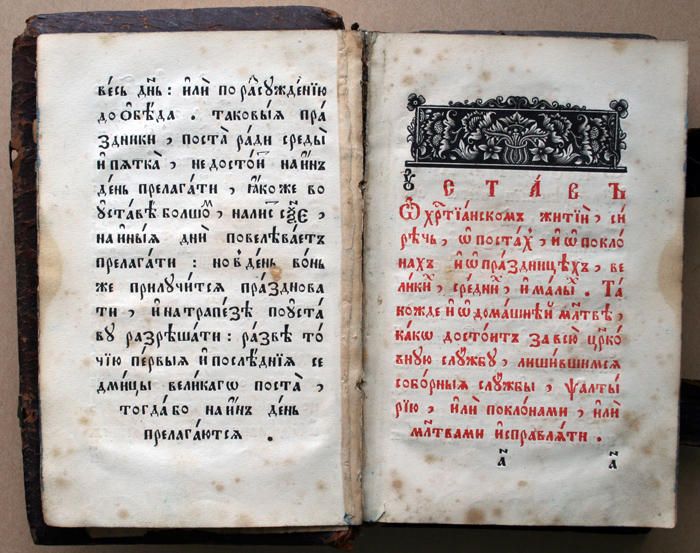 весь д҃нь : и҆лѝ по разсꙋжде́нїю
до ѡ҆бѣ́да . таковы́ѧ пра́
здники , поста̀ ра́ди среды̀
и҆ пѧтка̀ , не досто́итъ на и҆́нъ
де́нь прелага́ти , ꙗ҆́коже во
ᲂу҆ста́вѣ болшо́м ,
на и҆ны́ѧ дни̑ повелѣва́етъ
прелага́ти : но в де́нь во́нь
же прилꙋчи́тсѧ пра́зднова
ти , и҆ на трапе́зѣ по ᲂу҆ста́
вꙋ разрѣша́ти : ра́звѣ то́
чїю пе́рвыѧ и҆ послѣ́днїѧ се
дми́цы вели́кагѡ поста̀ ,
тогда́ бо на и҆́нъ де́нь
прелага́ютсѧ .
ᲂу҆ ста́въ
Ѿ хрⷭ҇тїа́нскомъ житїѝ , си́
рѣчь , ѡ҆ поста́хъ , и҆ ѡ҆ покло́
нахъ и҆ ѡ҆ пра́здницѣхъ , ве
ли́кихъ , сре́днихъ , и҆ ма́лыхъ . та́
кожде и҆ ѡ҆ дома́шнеи мл҃твѣ ,
ка́кѡ досто́итъ за всю̀ цр҃ко́
внꙋю слꙋ́жбꙋ , лиши́вшимсѧ
собо́рныѧ слꙋ́жбы , ѱалты́
рїю , и҆лѝ покло́нами , и҆лѝ
мл҃твами и҆справлѧ́ти .
н҃а а҃